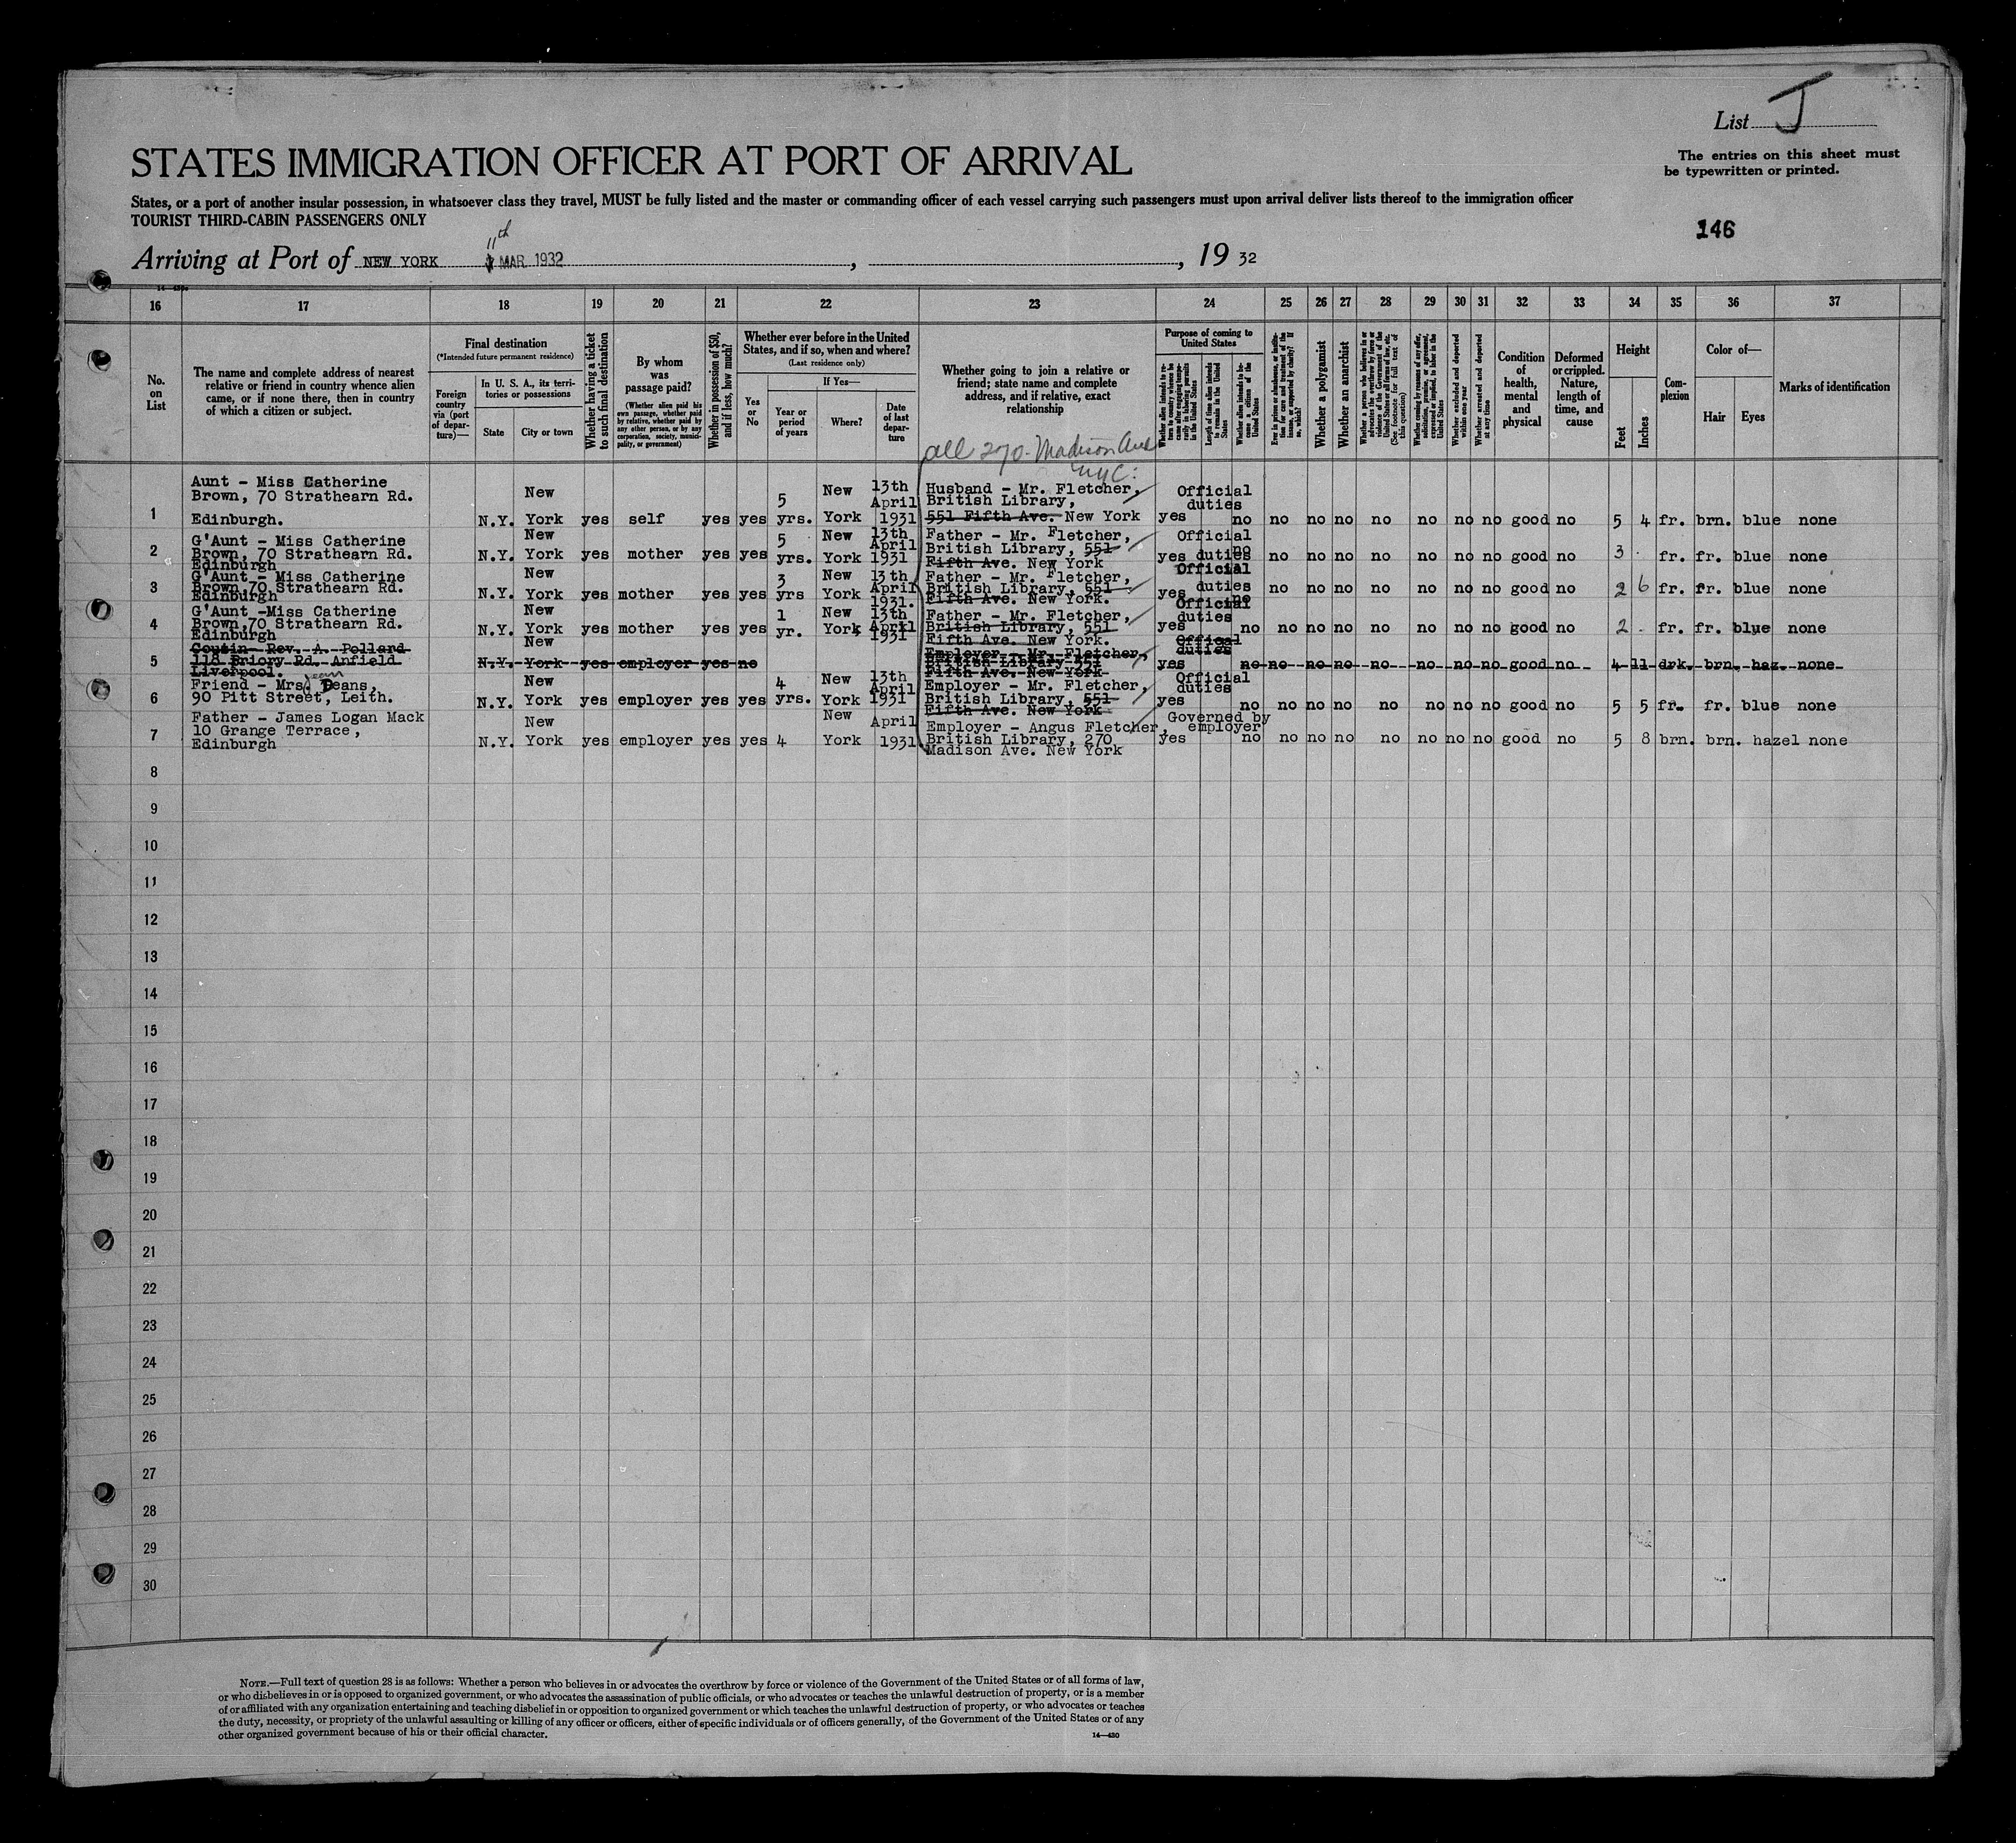 List J
STATES IMMIGRATION OFFICER AT PORT OF ARRIVAL
The entries on this sheet must
be typewritten or printed.
States, or a port of another insular possession, in whatsoever class they travel, MUST be fully listed and the master or commanding officer of each vessel carrying such passengers must upon arrival deliver lists thereof to the immigration officer
TOURIST THIRD-CABIN PASSENGERS ONLY
146
11th
Arriving at Port of NEW YORK MAR 1932, , 19 32
16 17 18 19 20 21 22 23 24 25 26 27 28 29 30 31 32 33 34 35 36 37
No.
on
List
The name and complete address of nearest
relative or friend in country whence alien
came, or if none there, then in country
of which a citizen or subject.
Final destination
(*Intended future permanent residence)
Foreign
country
via (port
of depar-
ture)—
In U. S. A., its terri-
tories or possessions
State
City or town
Whether having a ticket
to such final destination
By whom
was
passage paid?
(Whether alien paid his
own passage, whether paid
by relative, whether paid by
any other person, or by any
corporation, society, munici-
pality, or government)
Whether in possession of $50,
and if less, how much?
Whether ever before in the United
States, and if so, when and where?
(Last residence only)
Yes
or
No
If Yes—
Year or
period
of years
Where?
Date
of last
depar-
ture
Whether going to join a relative or
friend; state name and complete
address, and if relative, exact
relationship
all 270 Madison Ave
NYC:
Purpose of coming to
United States
Whether alien intends to re-
turn to country whence he
came after engaging tempo-
rarily in laboring pursuits
in the United States
Length of time alien intends
to remain in the United
States
Whether alien intends to be-
come a citizen of the
United States
Ever in prison or almshouse, or institu-
tion for care and treatment of the
insane, or supported by charity? If
so, which?
Whether a polygamist
Whether an anarchist
Whether a person who believes in or
advocates the overthrow by force or
violence of the Government of the
United States or all forms of law, etc.
(See footnote for full text of
this question)
Whether coming by reason of any offer,
solicitation, promise, or agreement,
expressed or implied, to labor in the
United States
Whether excluded and deported
within one year
Whether arrested and deported
at any time
Condition
of
health,
mental
and
physical
Deformed
or crippled.
Nature,
length of
time, and
cause
Height
Feet
Inches
Com-
plexion
Color of—
Hair
Eyes
Marks of identification
Aunt - Miss Catherine
Brown, 70 Strathearn Rd. New 5 New 13th April Husband - Mr. Fletcher, British Library, Official duties
1 Edinburgh. N.Y. York yes self yes yes yrs. York 1931 551 Fifth Ave. New York yes no no no no no no no no good no 5 4 fr. brn. blue none
G'Aunt - Miss Catherine New 5 New 13th April Father - Mr. Fletcher, Official
2 Brown, 70 Strathearn Rd. N.Y. York yes mother yes yes yrs. York 1931 British Library, 551 yes duties no no no no no no no no good no 3 fr. fr. blue none
Edinburgh Fifth Ave. New York
G'Aunt - Miss Catherine New 3 New 13th Father - Mr. Fletcher, Official
3 Brown, 70 Strathearn Rd. N.Y. York yes mother yes yes yrs York April British Library, 551 yes duties no no no no no no no no good no 2 6 fr. fr. blue none
Edinburgh 1931. Fifth Ave. New York.
G'Aunt -Miss Catherine New 1 New 13th Father - Mr. Fletcher, Official duties
4 Brown,70 Strathearn Rd. N.Y. York yes mother yes yes yr. York April British Library, 551 yes no no no no no no no no good no 2 fr. fr. blue none
Edinburgh 1931 Fifth Ave. New York.
Cousin- Rev. A. Pollard New Employer - Mr. Fletcher, Offical duties
5 118 Briory Rd. Anfield N.Y. York yes employer yes no British Library 551 yes no no no no no no no no good no 4 11 drk. brn. haz. none
Liverpool. Fifth Ave. New York
Friend - Mrs Jean Deans, New 4 New 13th April Employer - Mr. Fletcher, Official duties
6 90 Pitt Street, Leith. N.Y. York yes employer yes yes yrs. York 1931 British Library, 551 yes no no no no no no no no good no 5 5 fr. fr. blue none
Fifth Ave. New York
Father - James Logan Mack New New April Employer - Angus Fletcher, Governed by employer
7 10 Grange Terrace, N.Y. York yes employer yes yes 4 York 1931 British Library, 270 yes no no no no no no no no good no 5 8 brn. brn. hazel none
Edinburgh Madison Ave. New York
8
9
10
11
12
13
14
15
16
17
18
19
20
21
22
23
24
25
26
27
28
29
30
NOTE.—Full text of question 28 is as follows: Whether a person who believes in or advocates the overthrow by force or violence of the Government of the United States or of all forms of law,
or who disbelieves in or is opposed to organized government, or who advocates the assassination of public officials, or who advocates or teaches the unlawful destruction of property, or is a member
of or affiliated with any organization entertaining and teaching disbelief in or opposition to organized government or which teaches the unlawful destruction of property, or who advocates or teaches
the duty, necessity, or propriety of the unlawful assaulting or killing of any officer or officers, either of specific individuals or of officers generally, of the Government of the United States or of any
other organized government because of his or their official character.
14—430